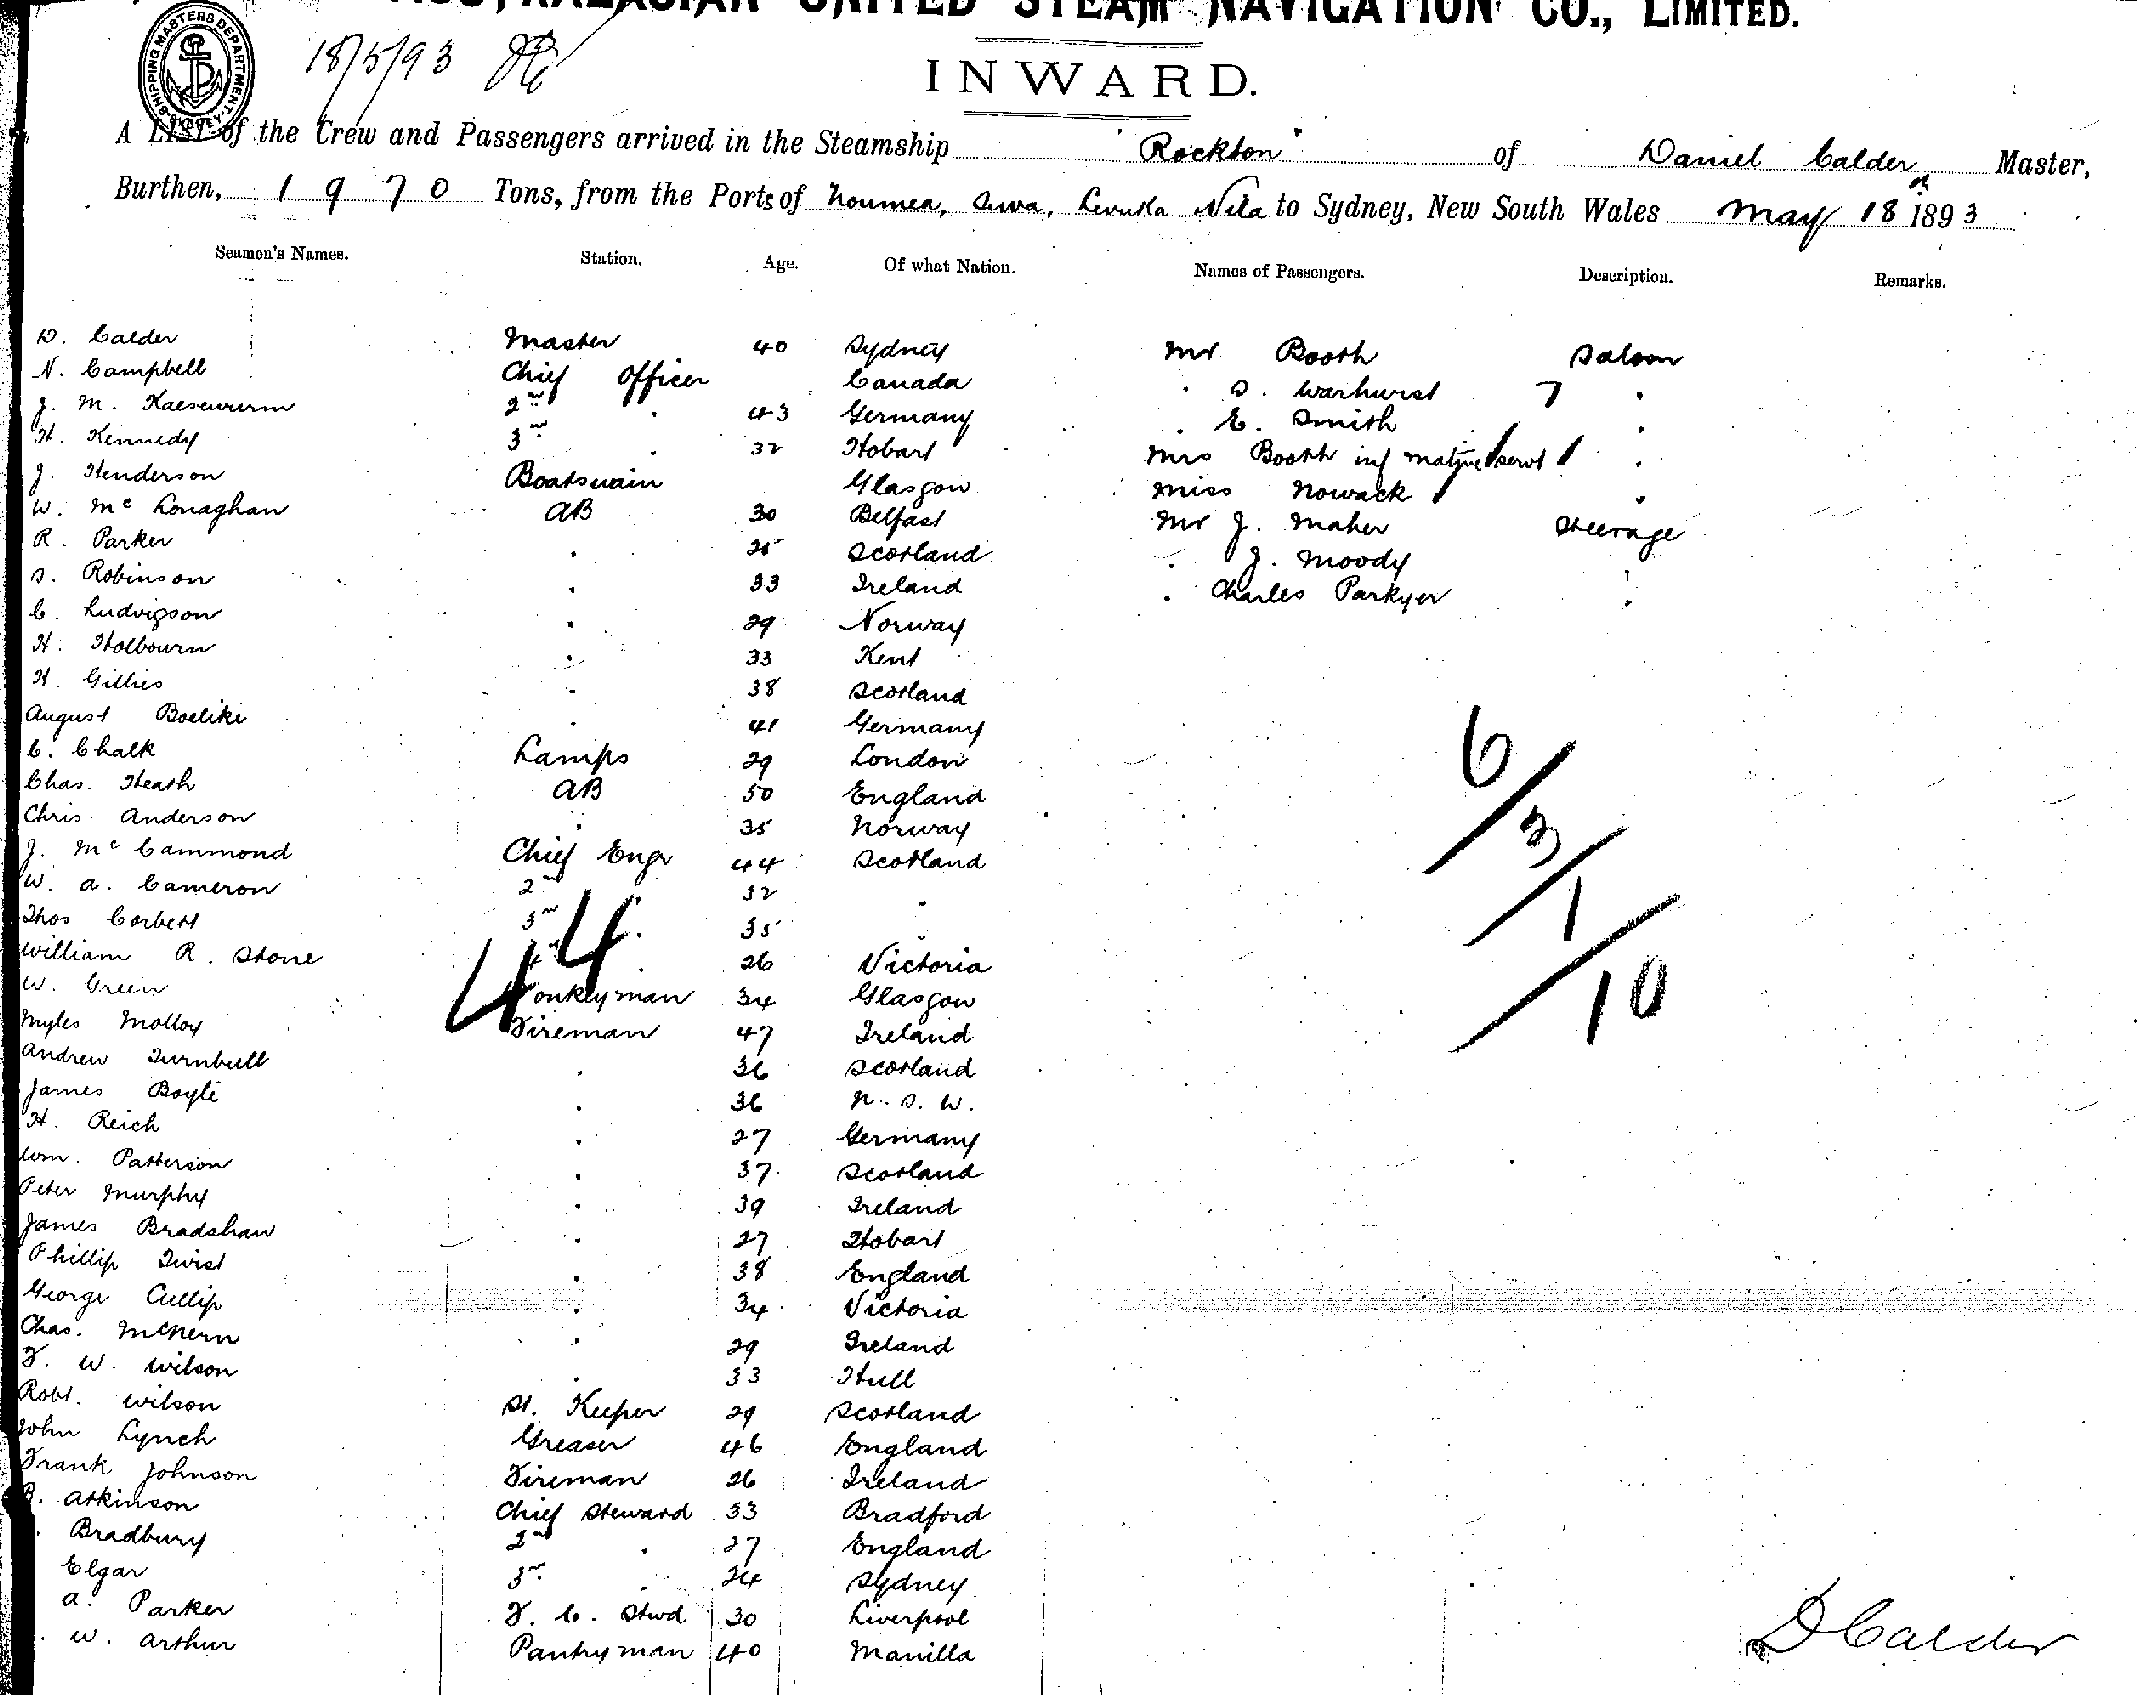 AUSTRALASIAN UNITED STEAM NAVIGATION CO., LIMITED.
SHIPPING MASTERS DEPARTMENT SYDNEY
18/5/93
INWARD.
A LIST of the Crew and Passengers arrived in the Steamship "Rockton" of Daniel Calder Master,
Burthen, 1970 Tons, from the Ports of Noumea, Suva, Levuka Vila to Sydney, New South Wales May 18th 1893
Seamen's Names. Station. Age. Of what Nation. Names of Passengers. Description. Remarks.
D. Calder Master 40 Sydney Mr Booth Saloon
N. Campbell Chief Officer Canada " S. Warhurst 7 "
J. M. Kaesewurm 2nd " 43 Germany " E. Smith "
H. Kennedy 3rd " 32 Hobart Mrs Booth inf native servt 1 "
J. Henderson Boatswain Glasgow Miss Nowack "
W. Mc Lonaghan AB 30 Belfast Mr J. Maher Steerage
R. Parker " 25 Scotland " J. Moody "
S. Robinson " 33 Ireland " Charles Parkyer "
C. Ludvigson " 29 Norway
H. Holbourn " 33 Kent
H. Gillies " 38 Scotland
August Boeliki " 41 Germany
C. Chalk Lamps 29 London
Chas. Heath AB 50 England
Chris Anderson " 35 Norway
J. Mc Cammond Chief Engr 44 Scotland
W. A. Cameron 2nd " 32 "
Thos Corbett 3rd " 35 "
William R. Stone 4th " 26 Victoria
W. Green Donkeyman 34 Glasgow
Myles Molloy Fireman 47 Ireland
Andrew Turnbull " 36 Scotland
James Boyle " 36 N. S. W.
H. Reich " 27 Germany
Wm. Patterson " 37 Scotland
Peter Murphy " 39 Ireland
James Bradshaw " 27 Hobart
Phillip Twist " 38 England
George Cullip " 34 Victoria
Chas. McNern " 29 Ireland
F. W. Wilson " 33 Hull
Robt. Wilson St. Keeper 29 Scotland
John Lynch Greaser 46 England
Frank Johnson Fireman 26 Ireland
R. Atkinson Chief Steward 33 Bradford
Bradbury 2nd " 27 England
Elgar 3rd " 24 Sydney
A. Parker F. C. Stwd 30 Liverpool
W. Arthur Pantryman 40 Manilla
44
6/3/1/10
D Calder